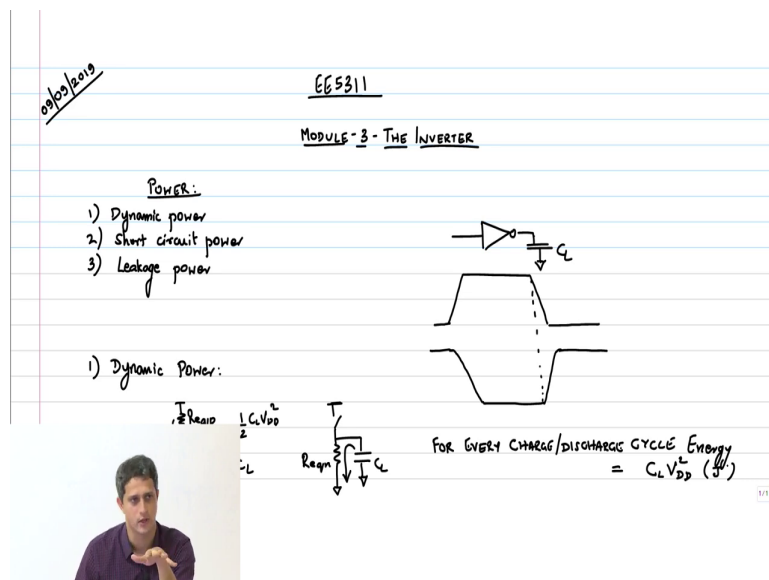 09/09/2019
EE5311
MODULE-3-THE INVERTER
POWER:
1) Dynamic power
2) Short circuit power
3) Leakage power
CL
1) Dynamic Power:
Reqp 1/2 CLVDD²
CL
Reqn CL
FOR EVERY CHARGE/DISCHARGE CYCLE Energy
= CLVDD² (J)
1/1